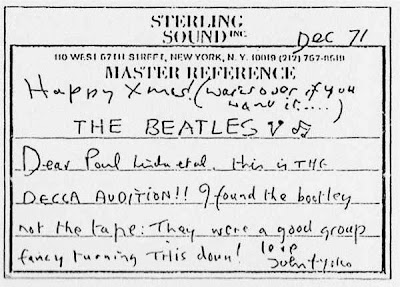 STERLING
SOUND INC.
Dec 71
110 WEST 57TH STREET, NEW YORK, N.Y. 10019 (212) 757-8519
MASTER REFERENCE
Happy Xmas! (war is over if you
want it....)
THE BEATLES
Dear Paul Linda et al. this is THE
DECCA AUDITION!! I found the bootleg
not the tape: They were a good group
fancy turning THIS down!
love
John + Yoko